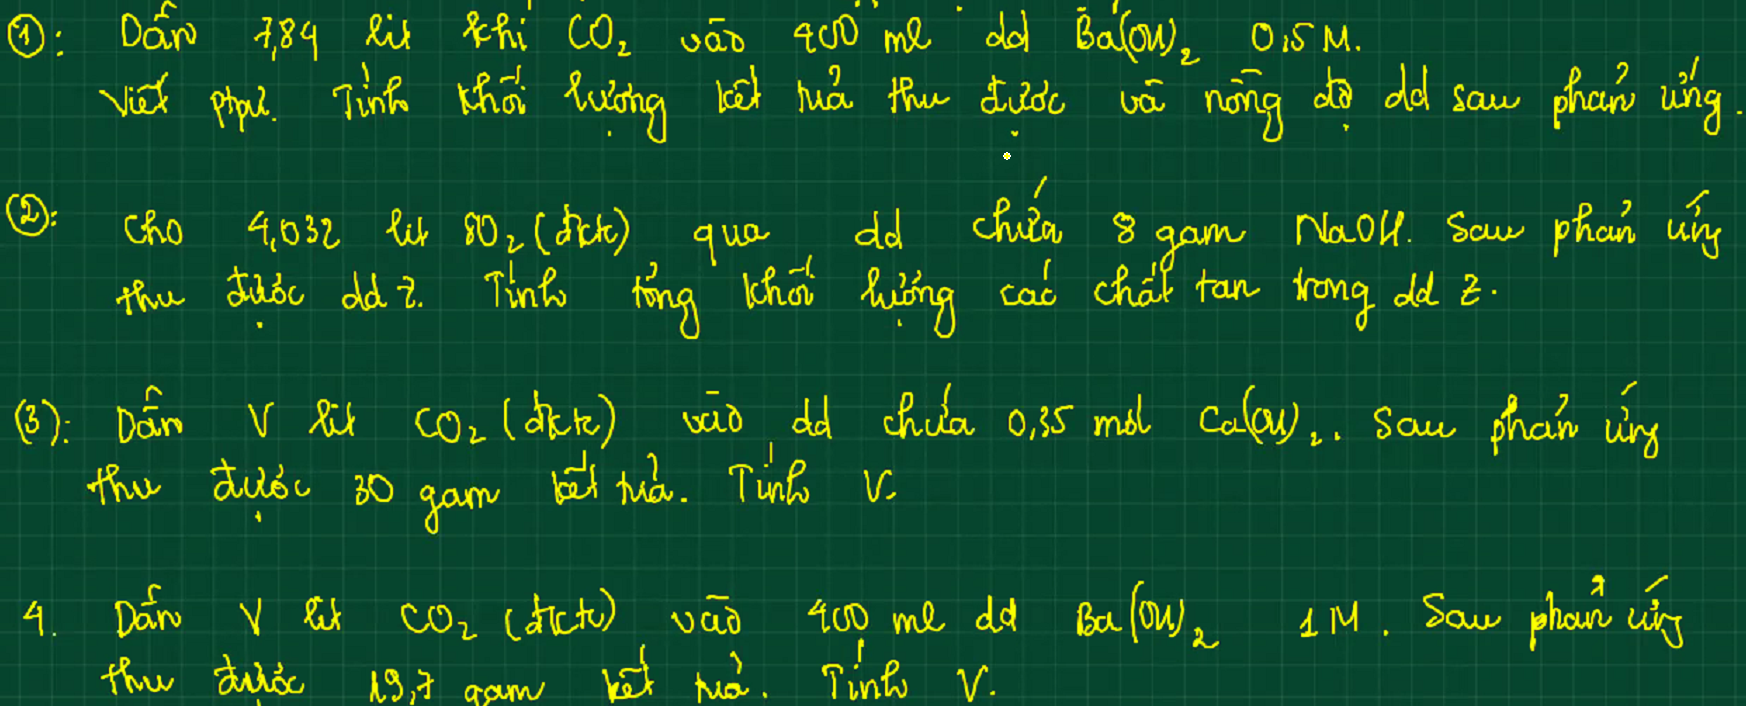 ①: Dẫn 7,84 lít khí CO₂ vào 400 ml dd Ba(OH)₂ 0,5M.
Viết ptpư. Tính khối lượng kết tủa thu được và nồng độ dd sau phản ứng.
②: Cho 4,032 lít SO₂ (đktc) qua dd chứa 8 gam NaOH. Sau phản ứng
thu được dd Z. Tính tổng khối lượng các chất tan trong dd Z.
(3): Dẫn V lít CO₂ (đktc) vào dd chứa 0,35 mol Ca(OH)₂. Sau phản ứng
thu được 30 gam kết tủa. Tính V.
4. Dẫn V lít CO₂ (đktc) vào 400 ml dd Ba(OH)₂ 1M. Sau phản ứng
thu được 19,7 gam kết tủa. Tính V.